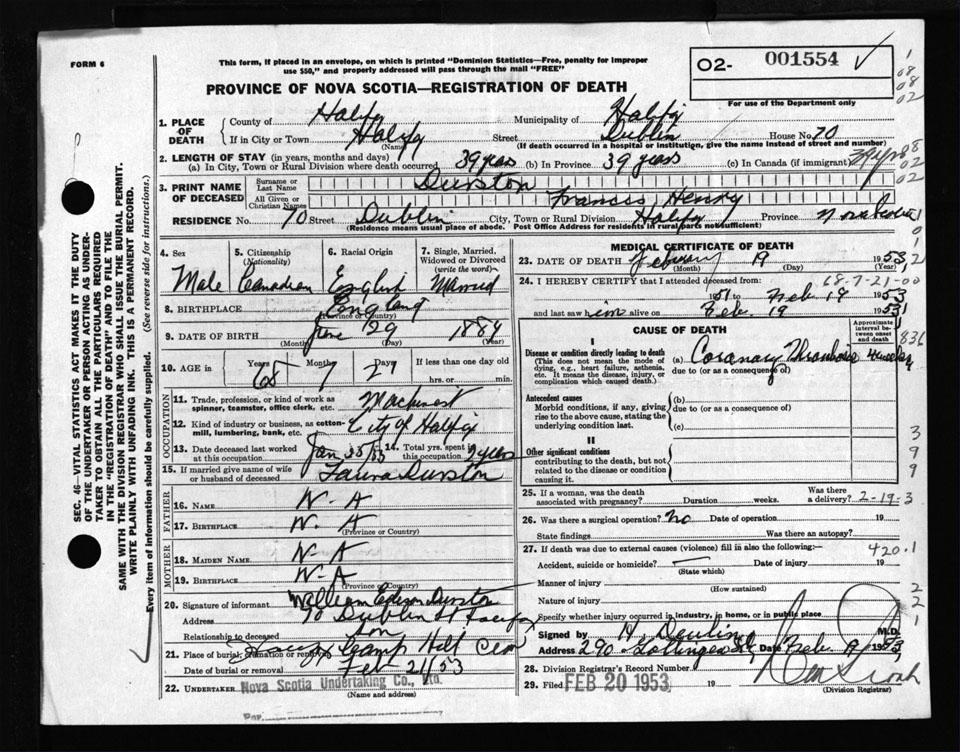 FORM 6
This form, if placed in an envelope, on which is printed "Dominion Statistics—Free, penalty for improper
use $50," and properly addressed will pass through the mail "FREE"
PROVINCE OF NOVA SCOTIA—REGISTRATION OF DEATH
O2- 001554
For use of the Department only
1. PLACE OF DEATH
County of Halifax Municipality of Halifax
If in City or Town Halifax (Name) Street Dublin House No. 70
(If death occurred in a hospital or institution, give the name instead of street and number)
2. LENGTH OF STAY (in years, months and days)
(a) In City, Town or Rural Division where death occurred 39 years (b) In Province 39 years (c) In Canada (if immigrant) 39 yrs
3. PRINT NAME OF DECEASED
Surname or Last Name Durston
All Given or Christian Names Francis Henry
RESIDENCE No. 70 Street Dublin City, Town or Rural Division Halifax Province Nova Scotia
(Residence means usual place of abode. Post Office Address for residents in rural parts not sufficient)
4. Sex Male
5. Citizenship (Nationality) Canadian
6. Racial Origin English
7. Single, Married, Widowed or Divorced (write the word) Married
8. BIRTHPLACE England
(Province or Country)
9. DATE OF BIRTH June 29 1884
(Month) (Day) (Year)
10. AGE in Years 68 Months 7 Days 21 If less than one day old
hrs. or min.
OCCUPATION
11. Trade, profession, or kind of work as
spinner, teamster, office clerk, etc. Machinist
12. Kind of industry or business, as cotton-
mill, lumbering, bank, etc. City of Halifax
13. Date deceased last worked
at this occupation Jan 14. Total yrs. spent in
this occupation years
15. If married give name of wife
or husband of deceased Laura Durston
FATHER
16. NAME N-A
17. BIRTHPLACE N-A
(Province or Country)
MOTHER
18. MAIDEN NAME N-A
19. BIRTHPLACE N-A
(Province or Country)
20. Signature of informant William Durston
Address 70 Dublin St Halifax
Relationship to deceased son
21. Place of burial, cremation or removal Camp Hill Cem
Date of burial or removal Feb 21/53
22. UNDERTAKER Nova Scotia Undertaking Co., Ltd.
(Name and address)
MEDICAL CERTIFICATE OF DEATH
23. DATE OF DEATH February 19 1953
(Month) (Day) (Year)
24. I HEREBY CERTIFY that I attended deceased from:
68-7-21-00
1951 to Feb. 19 1953
and last saw him alive on Feb. 19 1953
CAUSE OF DEATH
Approximate interval between onset and death
I
Disease or condition directly leading to death (a) Coronary Thrombosis 4 weeks
(This does not mean the mode of
dying, e.g., heart failure, asthenia,
etc. It means the disease, injury, or
complication which caused death.)
due to (or as a consequence of)
Antecedent causes
Morbid conditions, if any, giving
rise to the above cause, stating the
underlying condition last.
(b)
due to (or as a consequence of)
(c)
II
Other significant conditions
contributing to the death, but not
related to the disease or condition
causing it.
25. If a woman, was the death
associated with pregnancy? Duration weeks. Was there
a delivery? 2-19-3
26. Was there a surgical operation? no Date of operation 19
State findings Was there an autopsy?
27. If death was due to external causes (violence) fill in also the following:
420.1
Accident, suicide or homicide? Date of injury 19
(State which)
Manner of injury
(How sustained)
Nature of injury
Specify whether injury occurred in industry, in home, or in public place
Signed by H. Devline M.D.
Address 290 Gottingen St. Date Feb. 19 1953
28. Division Registrar's Record Number
29. Filed FEB 20 1953 19
(Division Registrar)
SEC. 46—VITAL STATISTICS ACT MAKES IT THE DUTY
OF THE UNDERTAKER OR PERSON ACTING AS UNDER-
TAKER TO OBTAIN ALL THE PARTICULARS REQUIRED
IN THE "REGISTRATION OF DEATH" AND TO FILE THE
SAME WITH THE DIVISION REGISTRAR WHO SHALL ISSUE THE BURIAL PERMIT.
WRITE PLAINLY WITH UNFADING INK. THIS IS A PERMANENT RECORD.
Every item of information should be carefully supplied. (See reverse side for instructions.)